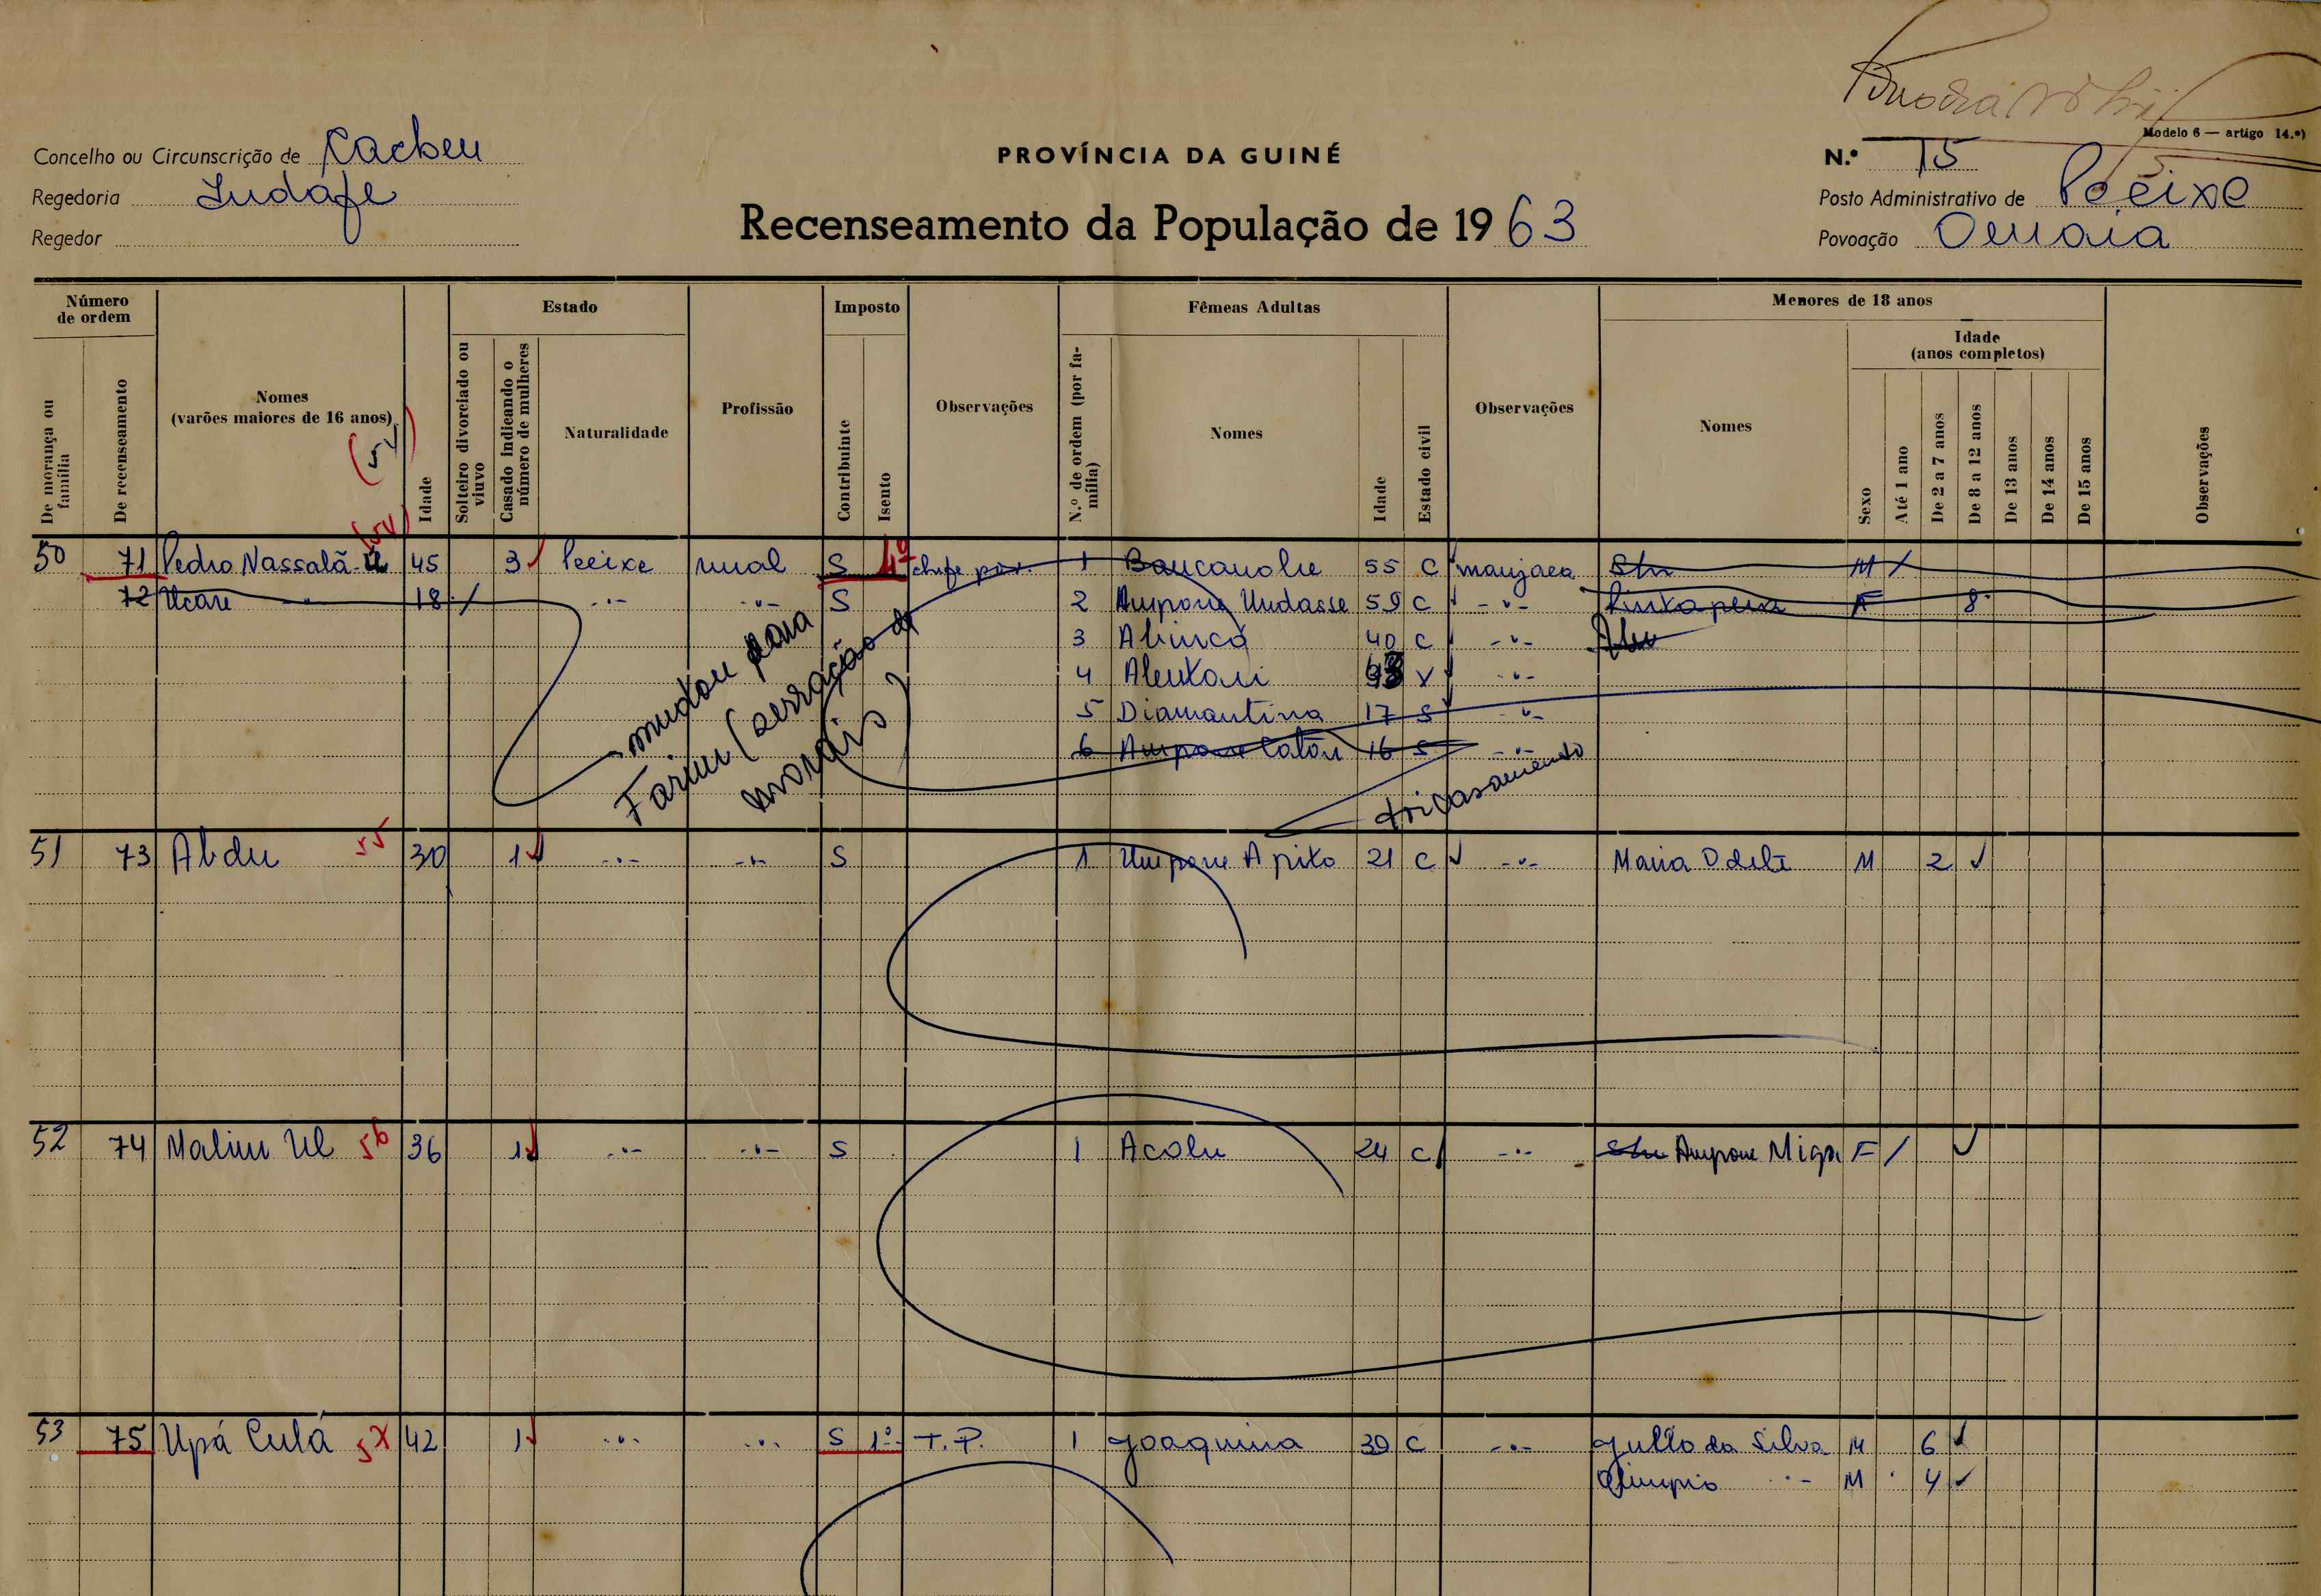 Modelo 6 — artigo 14.º)
Concelho ou Circunscrição de Cacheu
PROVÍNCIA DA GUINÉ
N.º 15
Regedoria Indafe
Recenseamento da População de 1963
Posto Administrativo de Peeixe
Regedor
Povoação
Número de ordem
Estado
Imposto
Fêmeas Adultas
Menores de 18 anos
Idade
(anos completos)
De morança ou família
De recenseamento
Nomes
(varões maiores de 16 anos)
Idade
Solteiro divorciado ou viuvo
Casado indicando o número de mulheres
Naturalidade
Profissão
Contribuinte
Isento
Observações
N.º de ordem (por família)
Nomes
Idade
Estado civil
Observações
Nomes
Sexo
Até 1 ano
De 2 a 7 anos
De 8 a 12 anos
De 13 anos
De 14 anos
De 15 anos
Observações
50 71 Pedro Nassalã 45 3 Peeixe rural S chefe pov. 1 55 C manjaca S/n M /
72 Ucau 18 / -"- -"- S 2 Ampone Undasse 59 C -"- F 8
3 Abinca 40 C -"-
4 V -"-
5 Diamantina 17 S -"-
6 Ampone Caton 16 S -"-
mudou para
Farim (serração de
morais)
51 73 Abdu 55 30 1 -"- -"- S 1 Umpone Apito 21 C -"- Maria Odete M 2
52 74 Malim Ul 56 36 1 -"- -"- S 1 Acolu 24 C -"- S/n Ampone Miga F /
53 75 Upá Culá 57 42 1 -"- -"- S 1º T.P. 1 Joaquina 39 C -"- Julio da Silva M 6
Olimpio -"- M 4